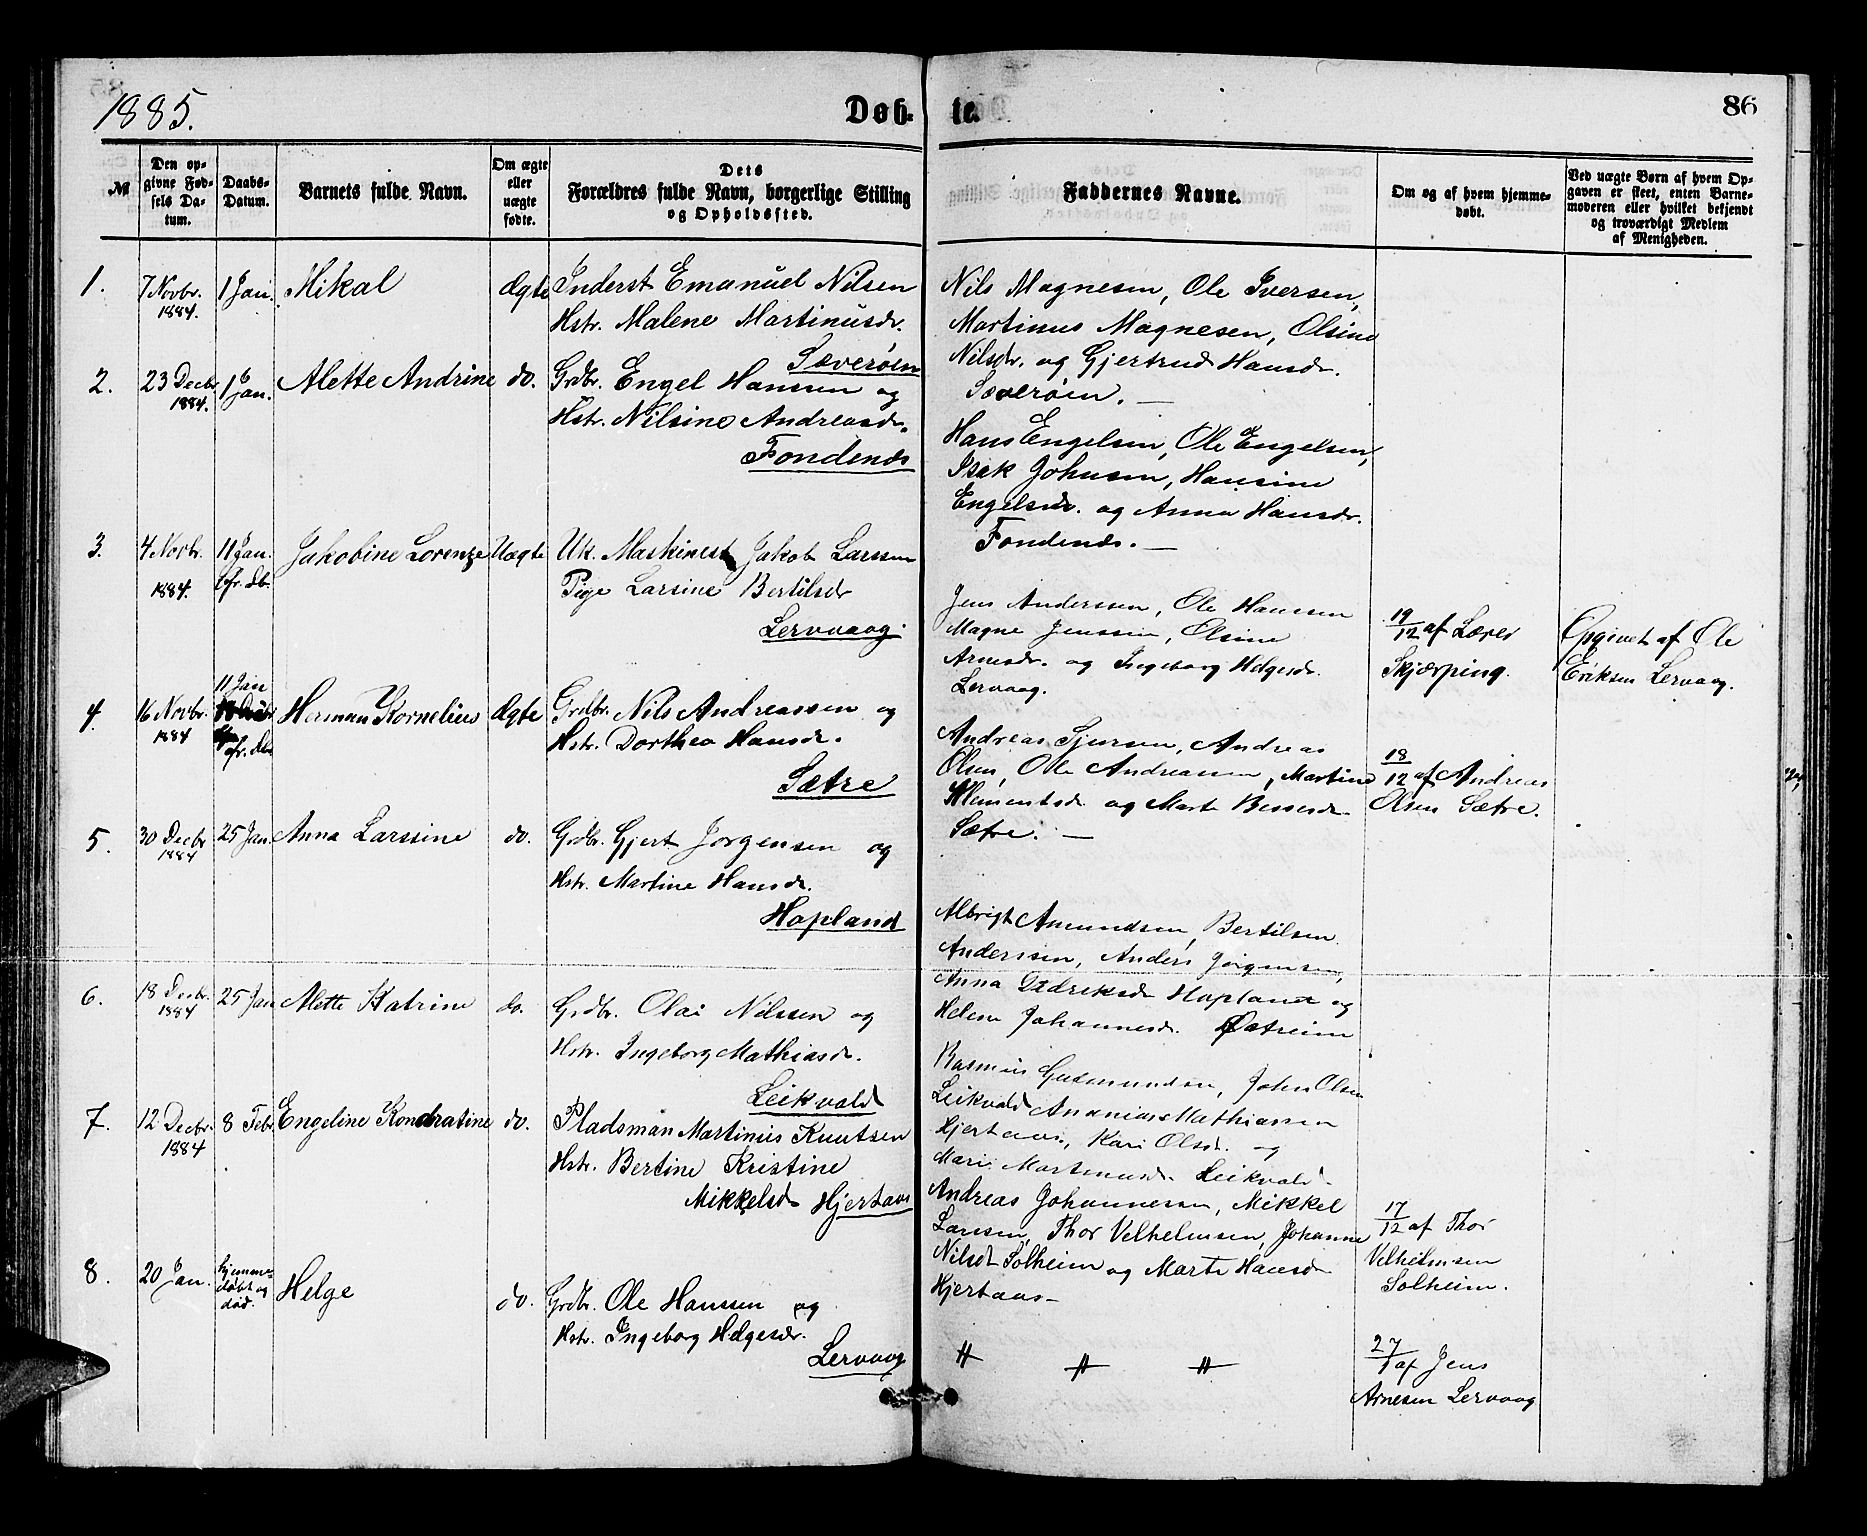 1885.
Døb-
te.
86
№
Den op-
givne Fød-
sels Da-
tum.
Daabs-
Datum.
Barnets fulde Navn.
Om ægte
eller
uægte
fødte.
Dets
Forældres fulde Navn, borgerlige Stilling
og Opholdssted.
Faddernes Navne.
Om og af hvem hjemme-
døbt.
Ved uægte Børn af hvem Op-
gaven er skeet, enten Barne-
moderen eller hvilket bekjendt
og troværdigt Medlem
af Menigheden.
1.
7 Novbr.
1884.
1 Jan.
Mikal
Ægte
Inderst Emanuel Nilsen
Hstr. Malene Martinusdr.
Sæverøen
Nils Magnesen, Ole Iversen,
Martinus Magnesen, Olsine
Nilsdr. og Gjertrud Hansdr.
Sæverøen. —
2.
23 Decbr
1884.
6
1 Jan.
Alette Andrine
do.
Grdbr. Engel Hanssen og
Hstr. Nilsine Andreasdr.
Fondenæs
Hans Engelsen, Ole Engelsen,
Isak Johnsen, Hansine
Engelsdr. og Anna Hansdr.
Fondenæs. —
3.
4 Novbr.
1884.
11 Jan.
fr. db.
Jakobine Lorenze
Uægte
Uk. Maskinest Jakob Larssen
Pige Larsine Bertilsdr
Lervaag.
Jens Anderssen, Ole Hanssen
Magne Jenssen, Olsine
Arnesdr. og Ingeborg Helgesdr.
Lervaag.
19/12 af Lærer
Skjærping.
Opgivet af Ole
Eriksen Lervaag.
4.
16 Novbr.
1884
11 Jan
fr. db
Herman Kornelius
Ægte
Grdbr. Nils Andreassen og
Hstr. Dorthea Hansdr.
Sætre
Andreas Sjursen, Andreas
Olsen, Ole Andreassen, Martine
Klementsdr og Marte Bessesdr
Sætre. —
18/12 af Andreas
Olsen Sætre.
5.
30 Decbr
1884
25 Jan.
Anna Larssine
do.
Grdbr. Gjert Jørgensen og
Hstr. Martine Hansdr.
Hopland
Albrigt Amundsen, Bertilsen
Anderssen, Anders Jørgensen,
Anna Didriksdr Hopland og
Helene Johannesdr. Østreim
6.
18 Decbr.
1884
25 Jan
Alette Katrine
do.
Grdbr. Olai Nilssen og
Hstr. Ingeborg Mathiasdr.
Leikvold
Rasmus Gudmundsen, John Olsen
Leikvold Ananias Mathiassen
Hjertaas, Kari Olsdr. og
Mari Martinusdr. Leikvold
7.
12 Decbr.
1884
8 Febr.
Engeline Kondratine
do.
Pladsman Martinus Knutsen
Hstr. Bertine Kristine
Mikkelsdr Hjertaas
Andreas Johannessen, Mikkel
Larssen, Thor Velhelmsen, Johanne
Nilsdr Solheim og Marte Hansdr
Hjertaas —
17/12 af Thor
Velhelmsen
Solheim.
8.
20 Jan.
hjemme-
døbt og
død.
Helge
do.
Grdbr. Ole Hanssen og
Hstr. Ingeborg Helgesdr.
Lervaag
〃 〃 〃
27/1 af Jens
Arnesen Lervaag